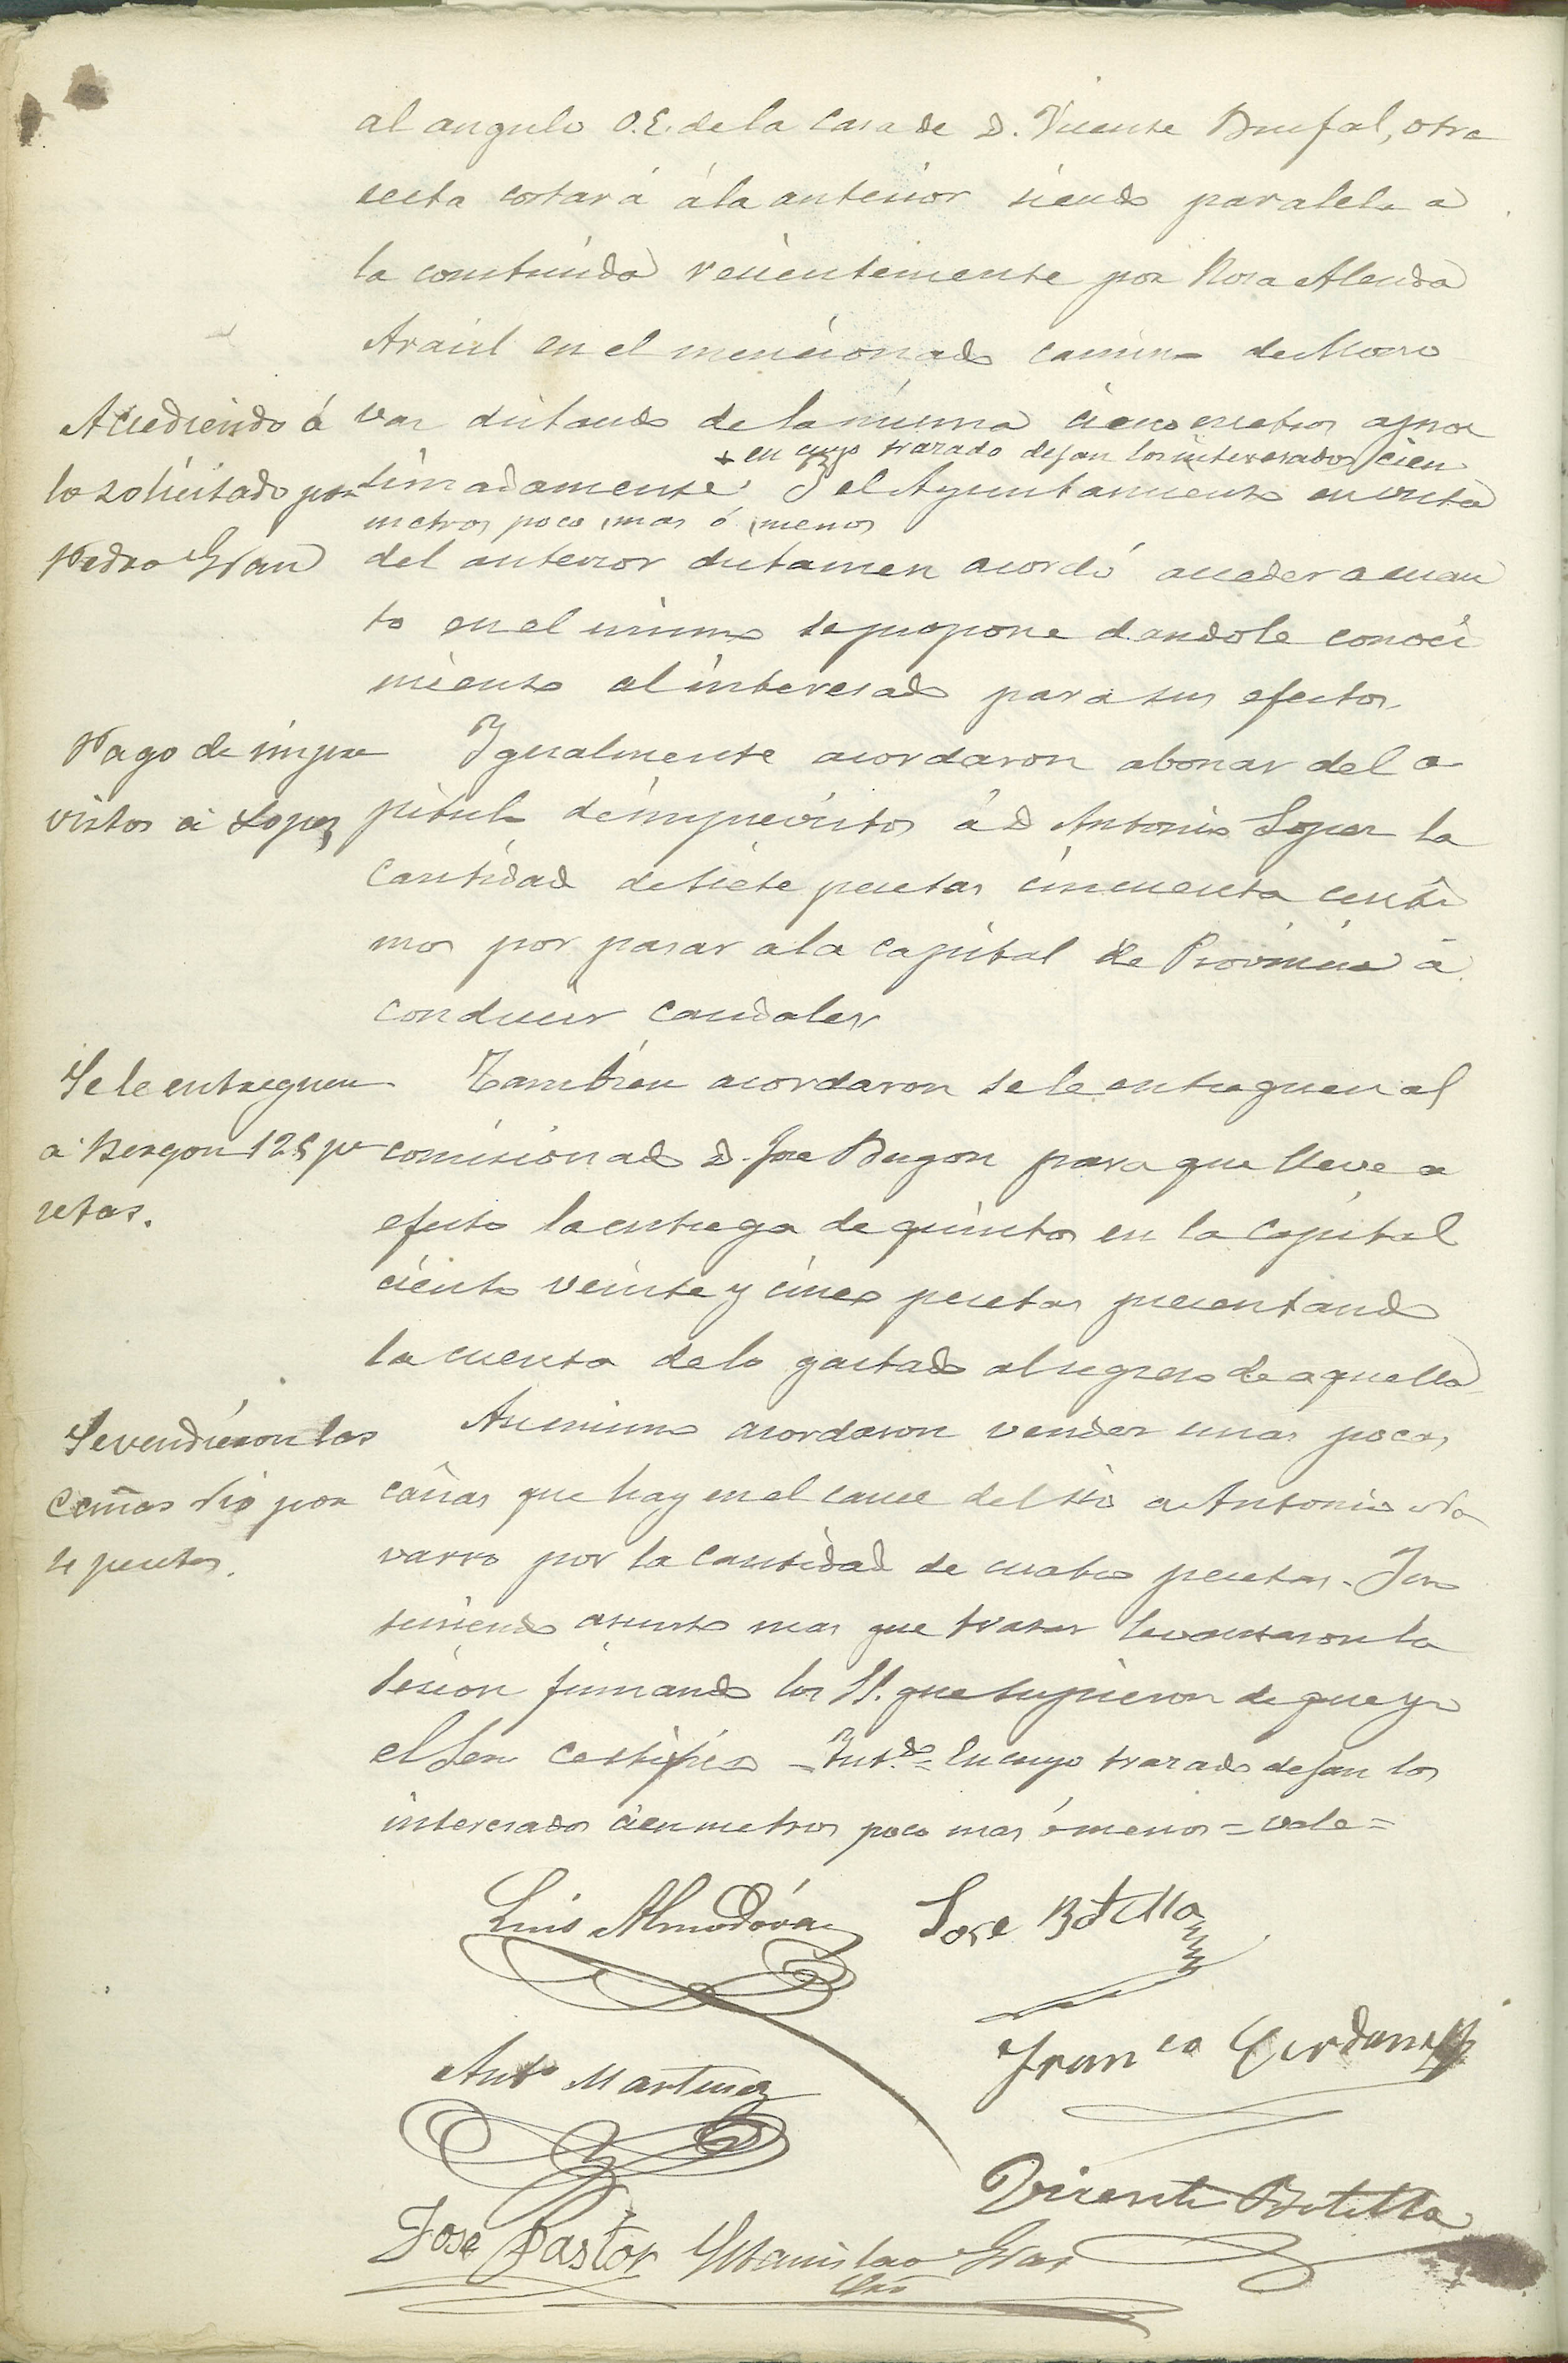 al angulo O.E. de la casa de D. Vicente Brufal, otra
recta cortará á la anterior siendo paralela a
la construida recientemente por Rosa Alenda
Araiul en el mencionado camino de Mono
Accediendo á
lo solicitado por
Pedro Gran
var distando de la misma cinco metros apro
+ en cuyo trazado dejan los interesados cien
simadamente. Y el Ayuntamiento en vista
metros poco mas ó menos
del anterior dictamen acordó acceder a cuan
to en el mismo se propone dandole conoci
miento al interesado para sus efectos.
Pago de impre
vistos á Lopez
Igualmente acordaron abonar del ca
pitulo de imprevistos á D Antonio Lopez la
cantidad de siete pesetas cincuenta centi
mos por pasar a la capital de Provincia á
conducir caudales
Se le entreguen
a Bergon 125 pe
setas.
Tambien acordaron se le entreguen al
comisionado D. Jose Bergon para que lleve a
efecto la entrega de quintos en la capital
ciento veinte y cinco pesetas presentando
la cuenta de lo gastado al regreso de aquella
Se vendieron las
cañas rio por
4 pesetas.
Asimismo acordaron vender unas pocas
cañas que hay en el cauce del rio a Antonio Na
varro por la cantidad de cuatro pesetas. Y no
teniendo asunto mas que tratar levantaron la
sesion firmando los SS. que supieron de que yo
el Sen certifico = Ynt.do = En cuyo trazado dejan los
interesados cien metros poco mas ó menos = vale =
Luis Almodóvar
Jose Botella
Anto Martinez
Franco Cerdan
Vicente Botella
Jose Pastor
Estanislao Gras
Srio